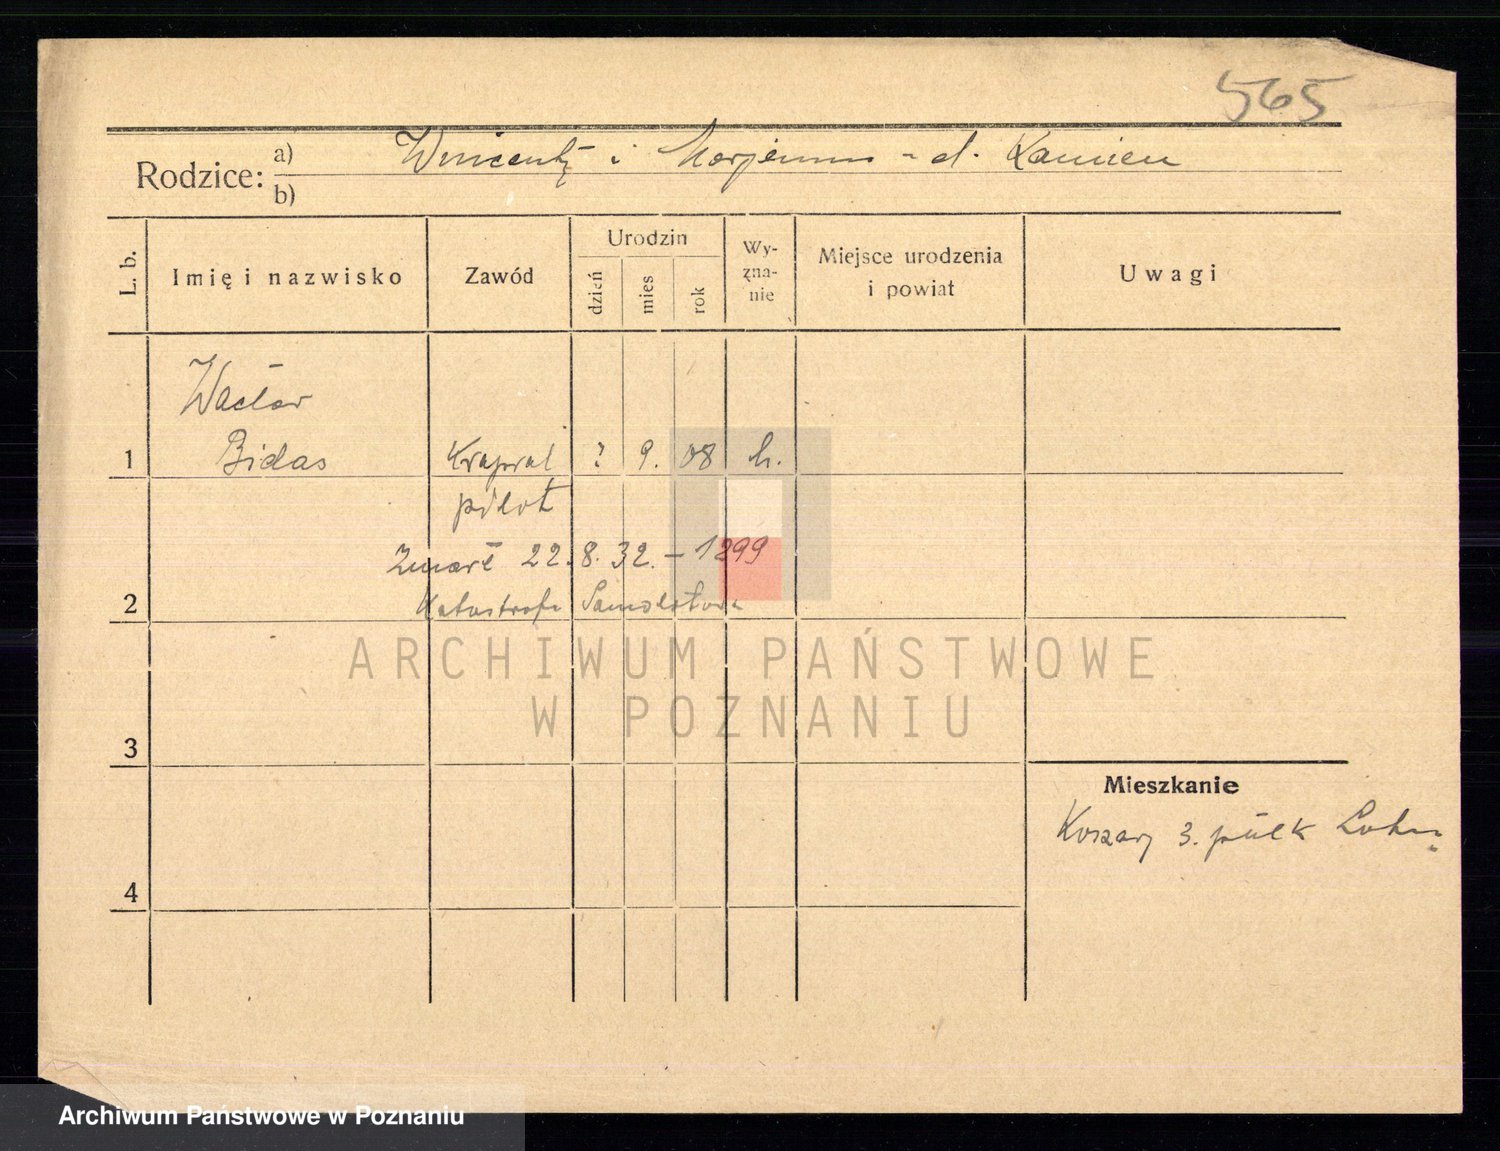 565
Rodzice: a) Wincenty i Marjanna - d. Kamień
b)
L. b. Imię i nazwisko Zawód Urodzin dzień mies rok Wy-zna-nie Miejsce urodzenia i powiat Uwagi
Wacław
1 Bidas Krapral ? 9. 08 k.
pilot
Zmarł 22.8.32. - 1299
2 Katastrofa Samolotowa
ARCHIWUM PAŃSTWOWE
W POZNANIU
3
Mieszkanie
Koszary 3. pułk Lotn.
4
Archiwum Państwowe w Poznaniu